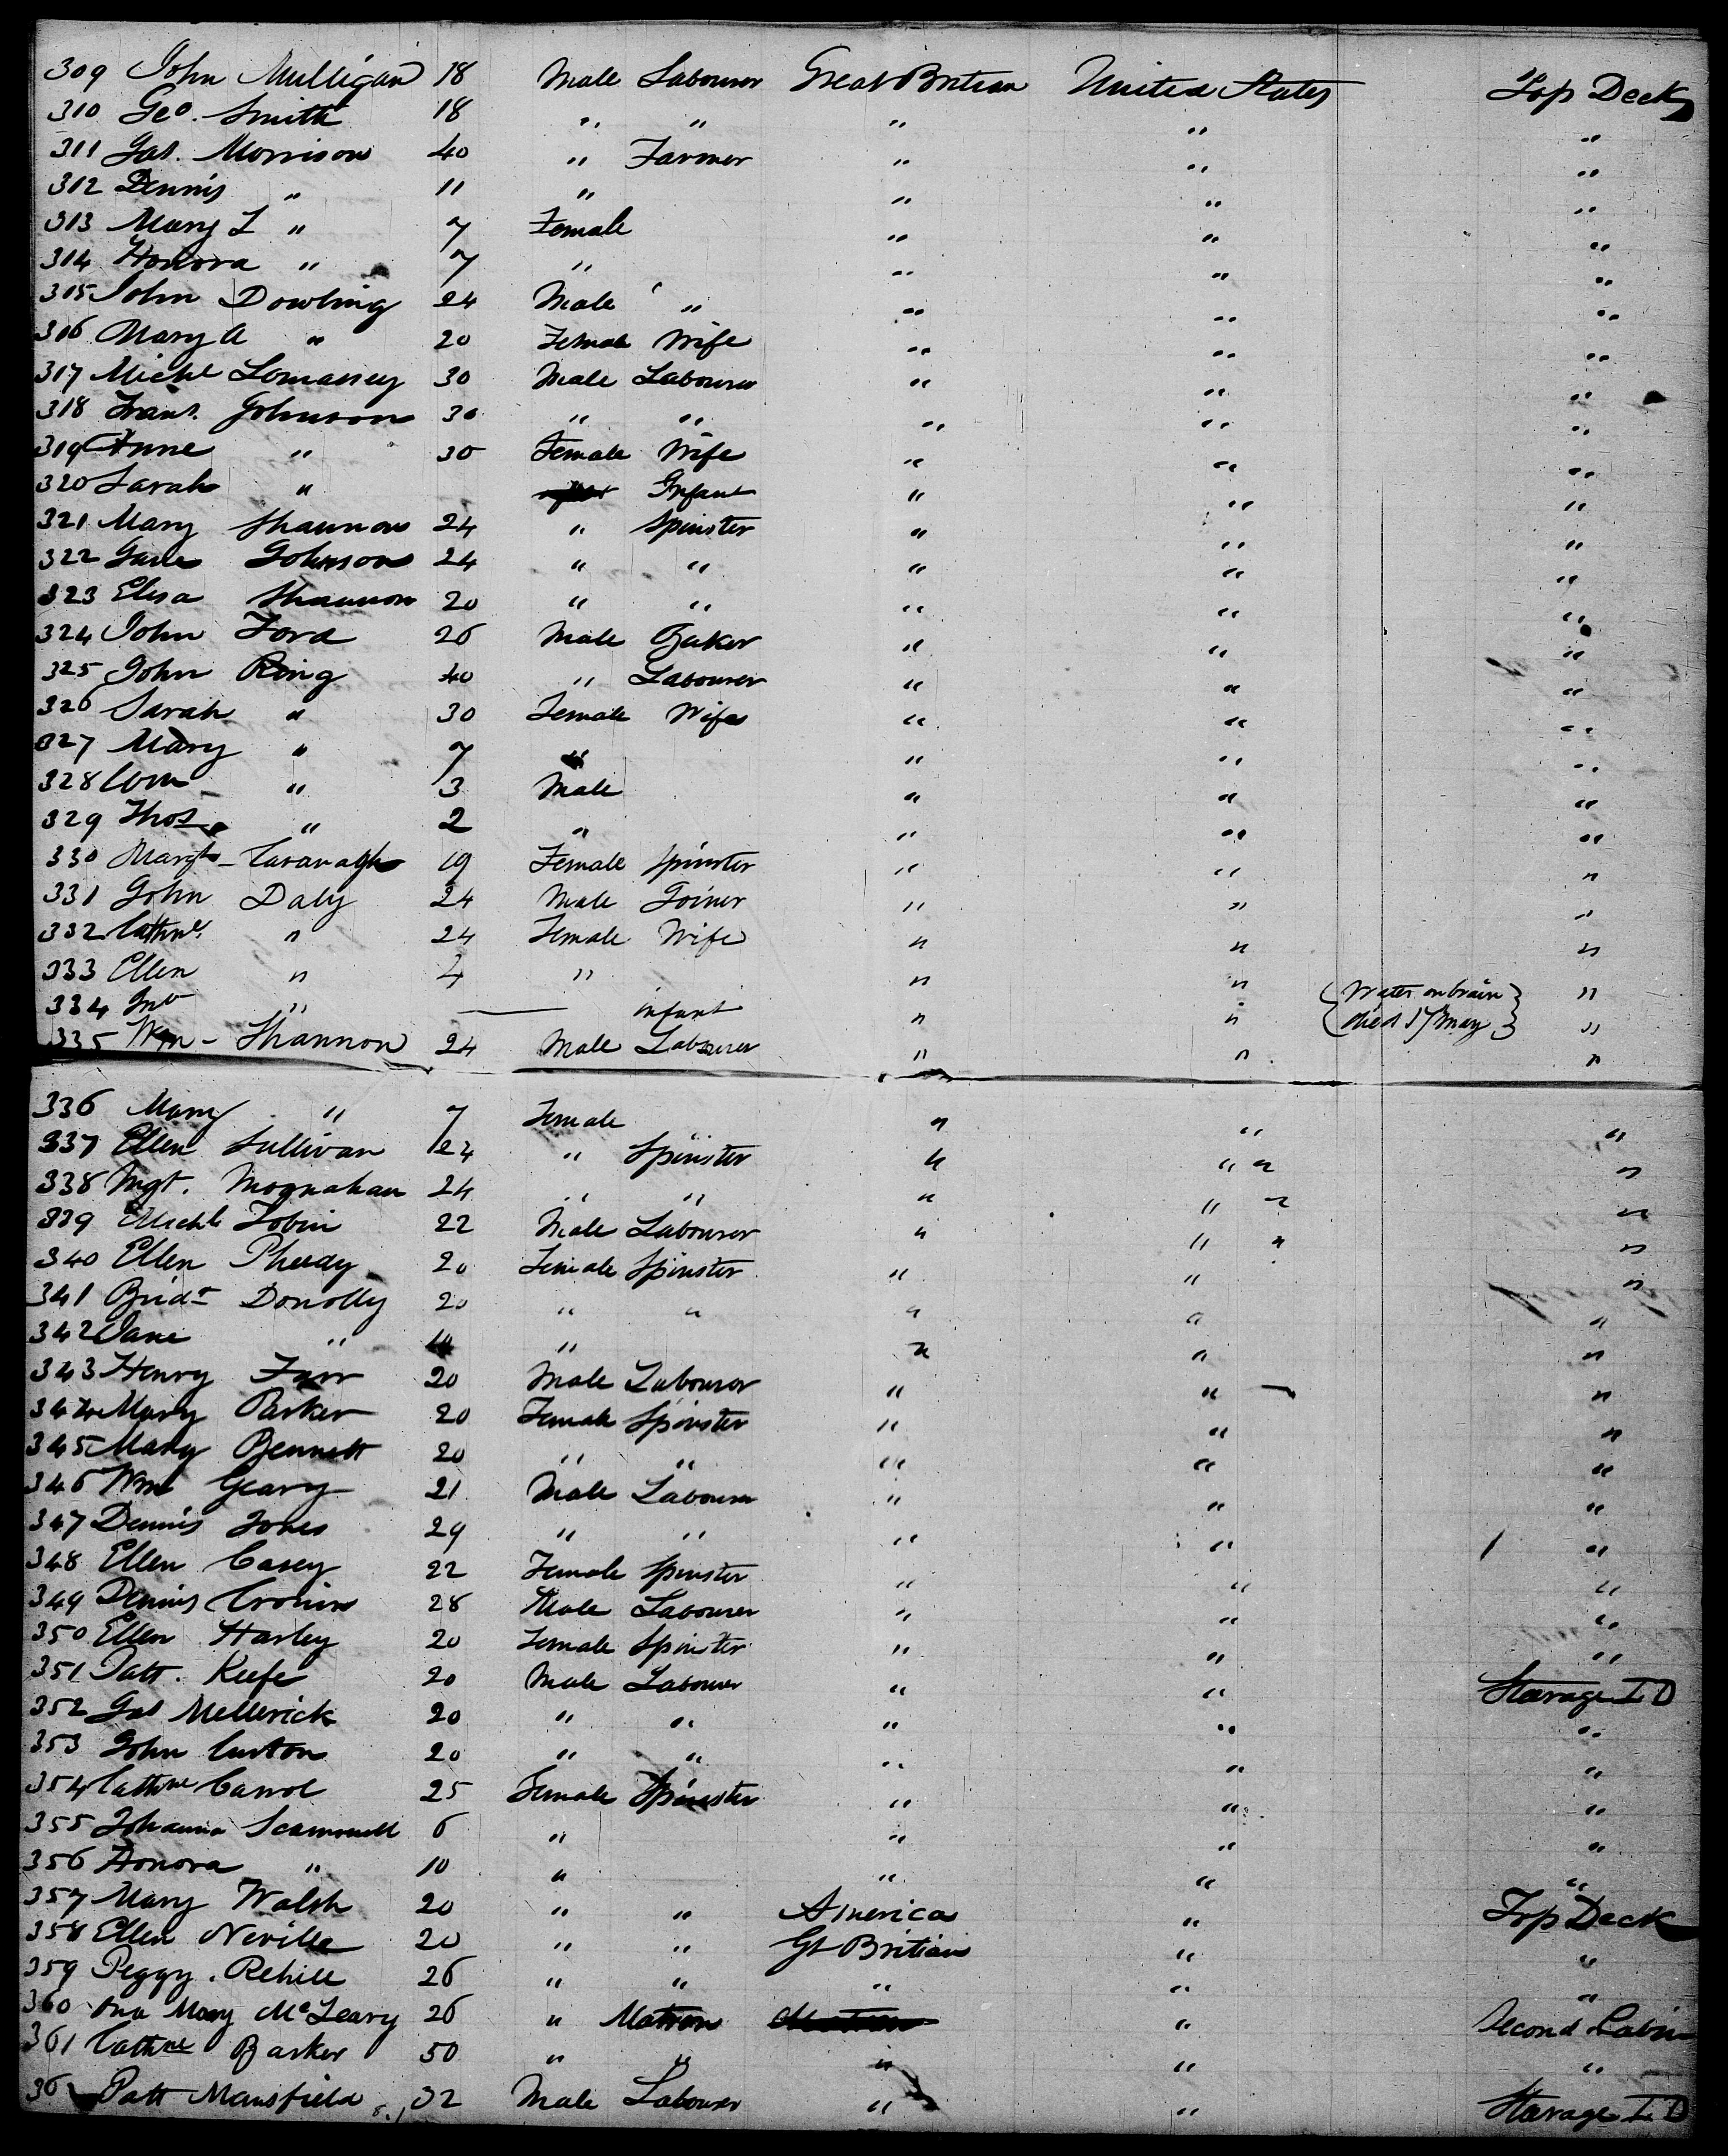 309 John Mulligan 18 Male Labourer Great Britian United States Top Deck
310 Geo. Smith 18 " " " " "
311 Jas. Morrison 40 " Farmer " " "
312 Dennis " 11 " " " "
313 Mary " 7 Female " " "
314 Honora " 7 " " " "
315 John Dowling 24 Male " " " "
316 Mary A " 20 Female Wife " " "
317 Michl Lomassey 30 Male Labourer " " "
318 Johnson 30 " " " " "
319 Anne " 30 Female Wife " " "
320 Sarah " Infant " " "
321 Mary Shannon 24 " Spinster " " "
322 Jane Johnson 24 " " " " "
323 Elisa Shannon 20 " " " " "
324 John Ford 26 Male Baker " " "
325 John Ring 40 " Labourer " " "
326 Sarah " 30 Female Wife " " "
327 Mary " 7 " " " "
328 Wm " 3 Male " " "
329 Thos. " 2 " " " "
330 Margt Cavanagh 19 Female Spinster " " "
331 John Daly 24 Male Joiner " " "
332 Cathne " 24 Female Wife " " "
333 Ellen " 4 " " " "
334 Jno " — infant " " { Water on brain died 17 May } "
335 Wm - Shannon 24 Male Labourer " " "
336 Mary " 7 Female " " "
337 Ellen Sullivan 24 " Spinster " " " "
338 Mgt. Moynahan 24 " " " " " "
339 Michl Tobin 22 Male Labourer " " " "
340 Ellen Pheedy 20 Female Spinster " " "
341 Bridt Donolly 20 " " " " "
342 Jane " " " " "
343 Henry 20 Male Labourer " " "
344 Mary Parker 20 Female Spinster " " "
345 Mary Bennett 20 " " " " "
346 Wm Geary 21 Male Labourer " " "
347 Dennis Jones 29 " " " " "
348 Ellen Casey 22 Female Spinster " " "
349 Dennis Cronin 28 Male Labourer " " "
350 Ellen Harley 20 Female Spinster " " "
351 Patt. Keefe 20 Male Labourer " " Stearage L D
352 Jas Mellerick 20 " " " " "
353 John Curton 20 " " " " "
354 Cathne Carrol 25 Female Spinster " " "
355 Johanna Scammell 6 " " " "
356 Honora " 10 " " " "
357 Mary Walsh 20 " " America " Top Deck
358 Ellen Neville 20 " " Gt Britian " "
359 Peggy Rehill 26 " " " " "
360 Mary McLeary 26 " Matron Matron " Second Cabin
361 Cathne Barker 50 " " " " "
36 Patt Mansfield 32 Male Labourer " " Stearage L D